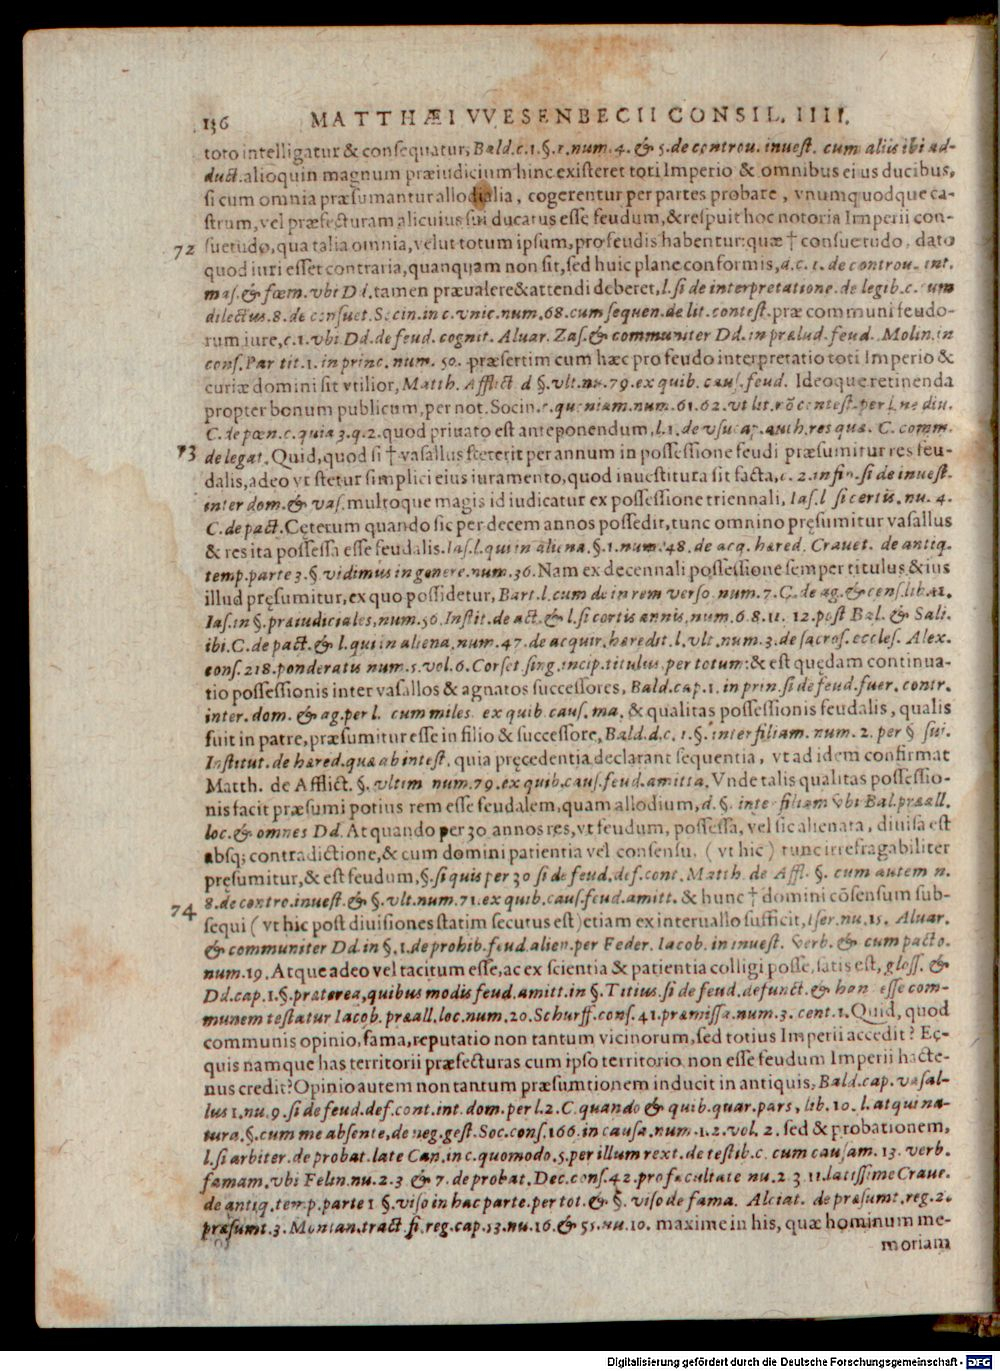 136 MATTHÆI VVESENBECII CONSIL. IIII.
toto intelligatur & consequatur, Bald.c.1.§.1.num.4. & 5.de controu. inuest. cum aliis ibi ad-
duct.alioquin magnum præiudicium hinc existeret toti Imperio & omnibus eius ducibus,
si cum omnia præsumantur allodialia, cogerentur per partes probare, vnumquodque ca-
strum, vel præfecturam alicuius sui ducatus esse feudum, & respuit hoc notoria Imperii con-
72 suetudo, qua talia omnia, velut totum ipsum, pro feudis habentur: quæ † consuetudo, dato
quod iuri esset contraria, quanquam non sit, sed huic plane conformis, d.c.1.de controu. int.
mas. & fœm. vbi Dd. tamen præualere & attendi deberet, l.si de interpretatione. de legib.c. cum
dilectus.8.de consuet. Socin.in c.vnic.num.68.cum sequen.de lit.contest. præ communi feudo-
rum iure, c.1.vbi Dd.de feud.cognit. Aluar. Zas. & communiter Dd. in prælud.feud. Molin.in
cons. Par tit.1.in princ.num. 50. præsertim cum hæc pro feudo interpretatio toti Imperio &
curiæ domini sit vtilior, Matth. Afflict. d §.vlt.nu.79.ex quib. caus.feud. Ideoque retinenda
propter bonum publicum, per not. Socin. c.quoniam.num.61.62.vt lit.nō contest. per l.ne diu.
C.de pœn.c.quia 3.q.2. quod priuato est anteponendum, l.1.de vsucap.auth.res quæ. C. comm.
73 de legat. Quid, quod si † vasallus steterit per annum in possessione feudi præsumitur res feu-
dalis, adeo vt stetur simplici eius iuramento, quod inuestitura sit facta, c.2.in fin.si de inuest.
inter dom. & vas. multoque magis id iudicatur ex possessione triennali, Ias.l si certis.nu. 4.
C.de pact. Ceterum quando sic per decem annos possedit, tunc omnino pręsumitur vasallus
& res ita possessa esse feudalis. Ias.l.qui in aliena.§.1.num.48.de acq. hæred. Crauet. de antiq.
temp.parte 3.§.vidimus in genere.num.36. Nam ex decennali possessione semper titulus & ius
illud pręsumitur, ex quo possidetur, Bart.l.cum de in rem verso.num.7.C.de ag. & cens.lib.11.
Ias.in §.præiudiciales, num.56. Instit. de act. & l.si certis annis, num.6.8.11. 12.post Bal. & Sali.
ibi.C.de pact. & l.qui in aliena.num.47.de acquir.hæredit.l.vlt.num.3.de sacros.eccles. Alex.
cons.218.ponderatis num.5.vol.6. Corset sing.incip.titulus.per totum: & est quędam continua-
tio possessionis inter vasallos & agnatos successores, Bald.cap.1.in prin.si de feud.fuer.contr.
inter.dom. & ag.per l. cum miles ex quib.caus.ma. & qualitas possessionis feudalis, qualis
fuit in patre, præsumitur esse in filio & successore, Bald.d.c.1.§.inter filiam.num. 2.per § sui.
Institut. de hæred.quæ ab intest. quia pręcedentia declarant sequentia, vt ad idem confirmat
Matth. de Afflict. §.vltim num.79.ex quib.caus.feud.amitta. Vnde talis qualitas possessio-
nis facit præsumi potius rem esse feudalem, quam allodium, d. §. inter filiam vbi Bal.præall.
loc. & omnes Dd. At quando per 30 annos res, vt feudum, possessa, vel sic alienata, diuisa est
absq; contradictione, & cum domini patientia vel consensu, (vt hic) tunc irrefragabiliter
pręsumitur, & est feudum, §.si quis per 30 si de feud.def.cont. Matth. de Affl. §. cum autem n.
74 8.de contro.inuest. & §.vlt.num.71.ex quib.caus.feud.amitt. & hunc † domini cōsensum sub-
sequi (vt hic post diuisiones statim secutus est) etiam ex interuallo sufficit, Iser.nu.15. Aluar.
& communiter Dd.in §.1.de prohib.feud.alien.per Feder. Iacob.in inuest. verb. & cum pacto.
num.19. Atque adeo vel tacitum esse, ac ex scientia & patientia colligi posse, satis est, gloss. &
Dd.cap.1.§.præterea, quibus modis feud.amitt.in §.Titius.si de feud.defunct. & hanc esse com-
munem testatur Iacob. præall.loc.num.20. Schurff.cons.41.præmissa.num.3.cent.1. Quid, quod
communis opinio, fama, reputatio non tantum vicinorum, sed totius Imperii accedit? Ec-
quis namque has territorii præfecturas cum ipso territorio non esse feudum Imperii hacte-
nus credit? Opinio autem non tantum præsumtionem inducit in antiquis, Bald.cap.vasal-
lus 1.nu.9.si de feud.def.cont.int.dom.per l.2.C.quando & quib.quar.pars, lib.10.l.at qui na-
tura.§.cum me absente, de neg.gest. Soc.cons.166.in causa.num.1.2.vol. 2. sed & probationem,
l.si arbiter.de probat.late Can.in c.quomodo.5.per illum rext.de testib.c. cum causam. 13. verb.
famam.vbi Felin.nu.2.3 & 7.de probat. Dec.cons.42.pro facultate nu.2 3.11.latissime Craue.
de antiq.temp.parte 1 §.viso in hac parte.per tot. & §. viso de fama. Alciat. de præsumt.reg.2.
præsumt.3. Montan.tract.fi.reg.cap.13.nu.16. & 51.nu.10. maxime in his, quæ hominum me-
moriam
Digitalisierung gefördert durch die Deutsche Forschungsgemeinschaft - DFG